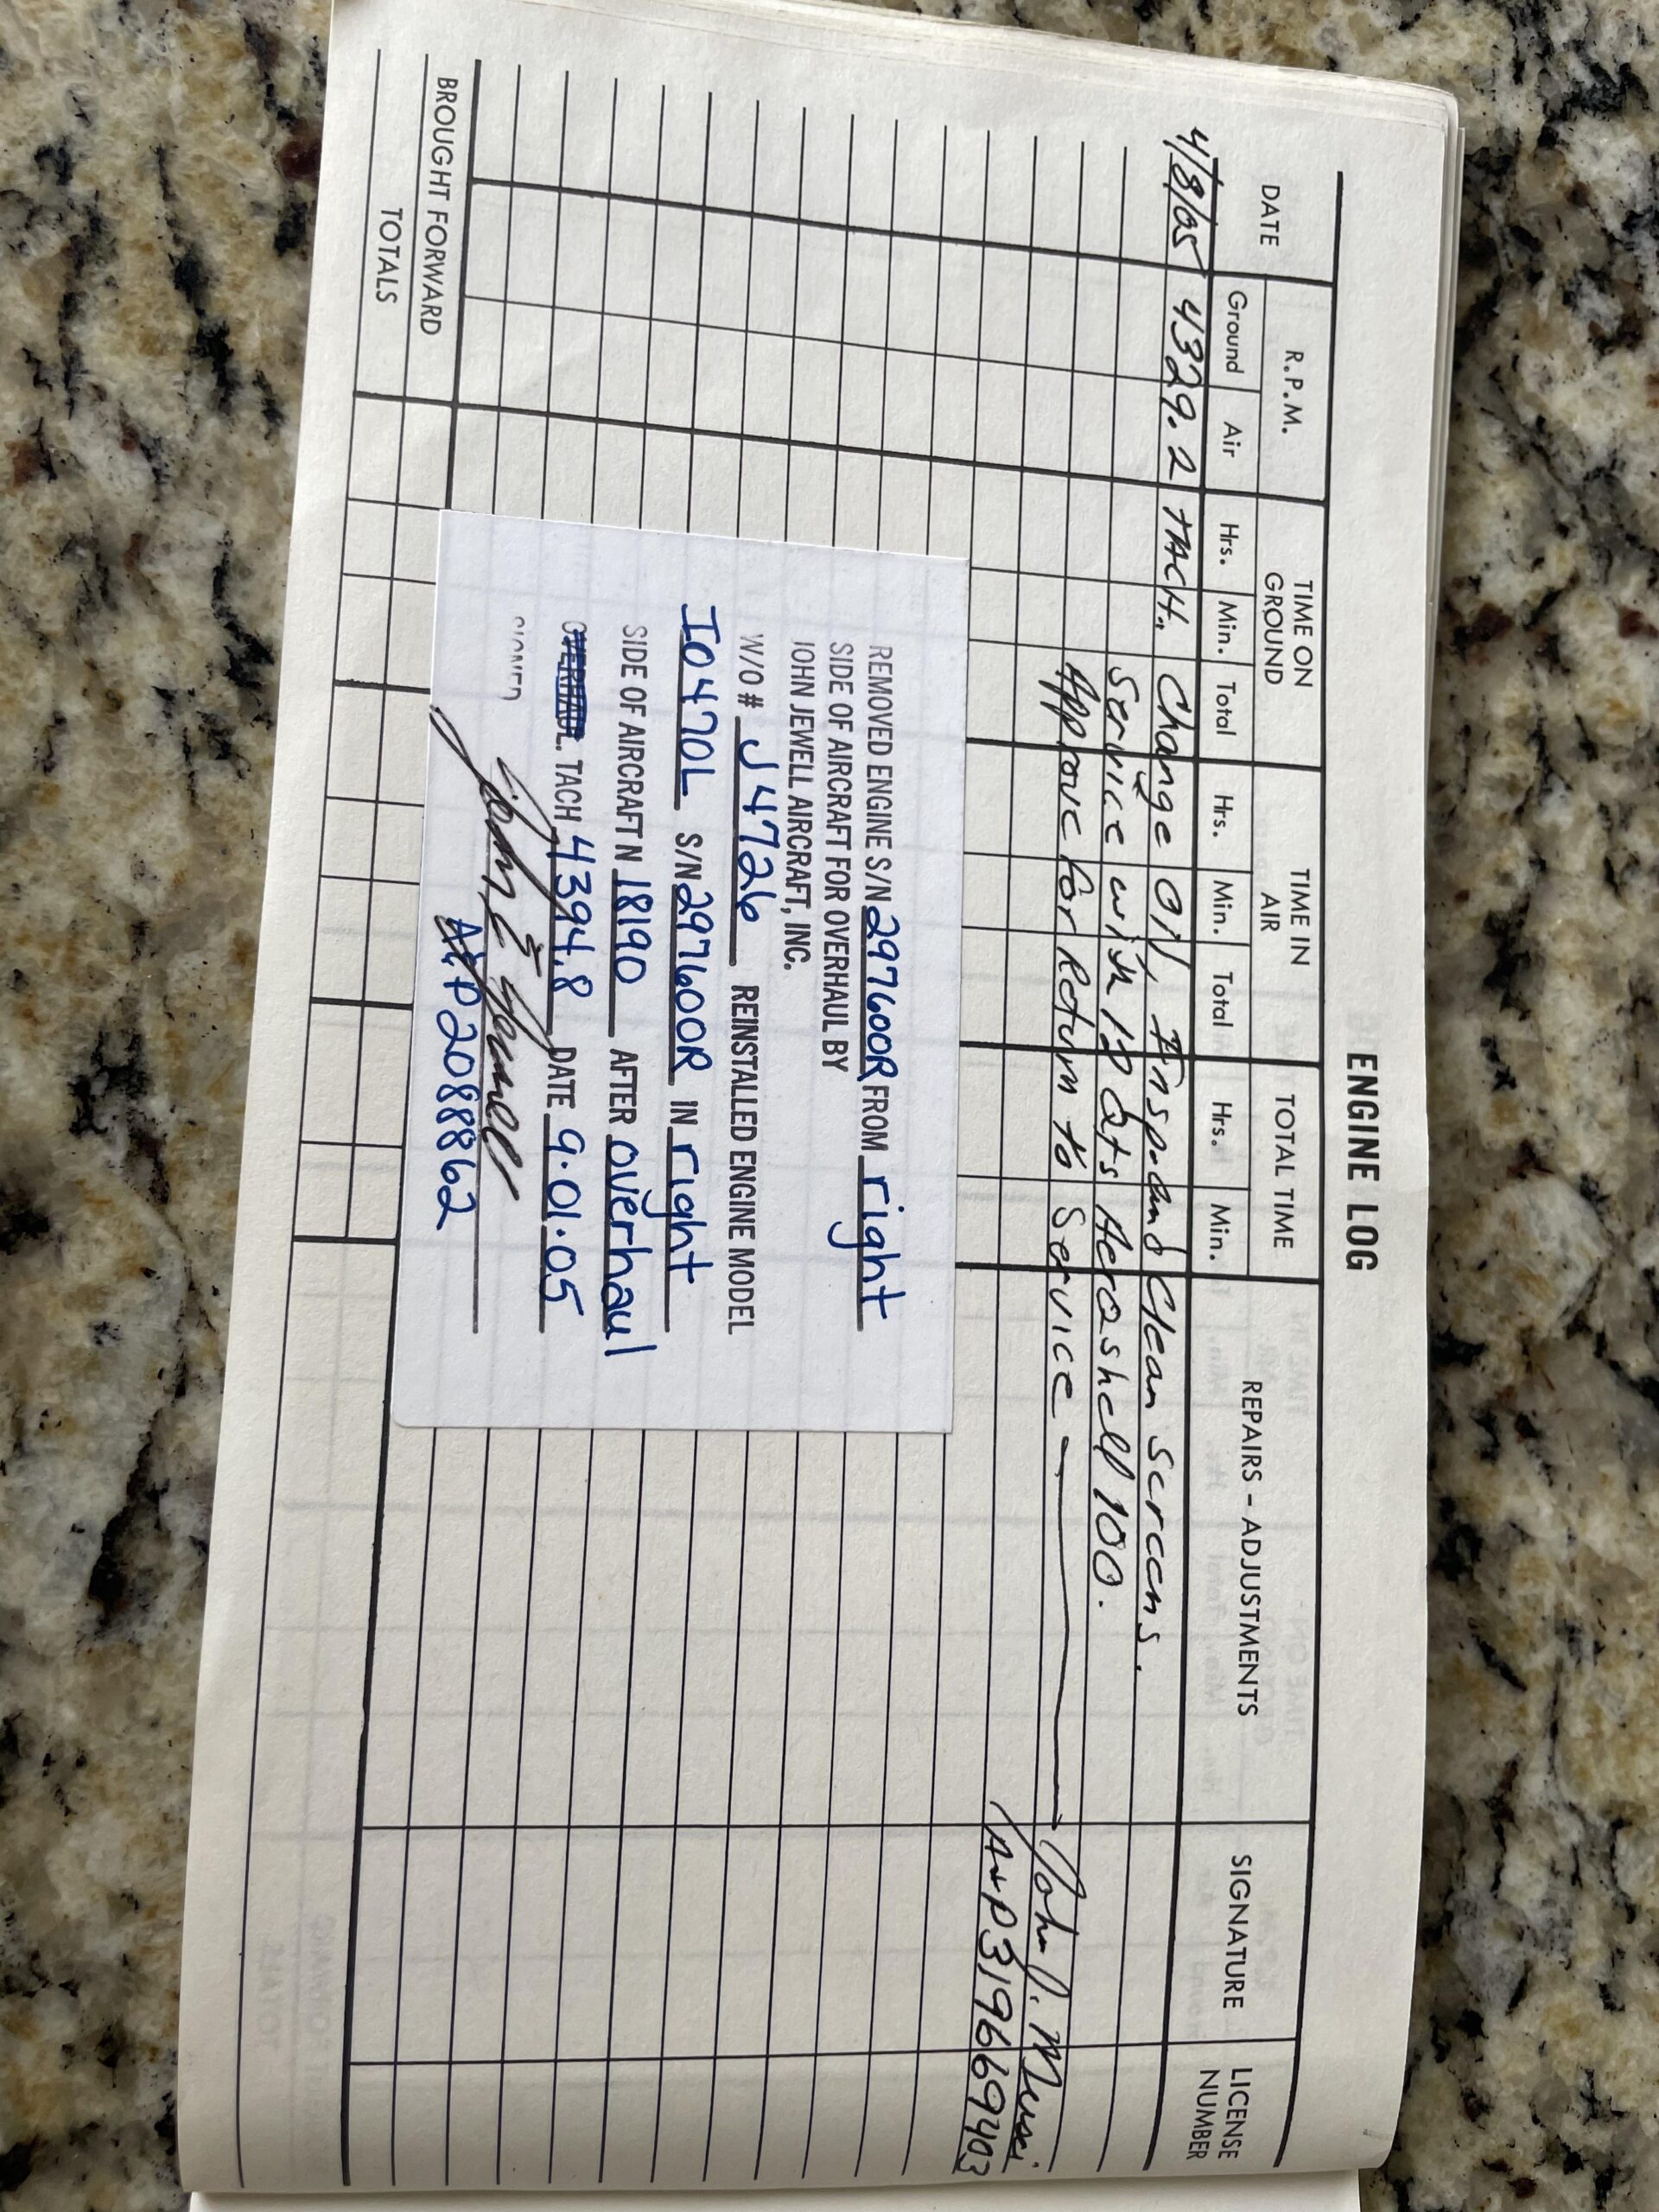 ENGINE LOG
DATE
R.P.M.
TIME ON GROUND
TIME IN AIR
TOTAL TIME
REPAIRS - ADJUSTMENTS
SIGNATURE
LICENSE NUMBER
Ground Air Hrs. Min. Total Hrs. Min. Total Hrs. Min.
4/8/05 4329.2 TACH. Change Oil, Insp. and Clean Screens.
Service with 12 Qts Aeroshell 100.
Approve for Return to Service John J.
A+P 319669403
REMOVED ENGINE S/N 297600R FROM right
SIDE OF AIRCRAFT FOR OVERHAUL BY
JOHN JEWELL AIRCRAFT, INC.
W/O # J4726 REINSTALLED ENGINE MODEL
IO470L S/N 297600R IN right
SIDE OF AIRCRAFT N 18190 AFTER overhaul
OVERHAUL. TACH 4394.8 DATE 9.01.05
SIGNED John E Jewell
A&P 2088862
BROUGHT FORWARD
TOTALS